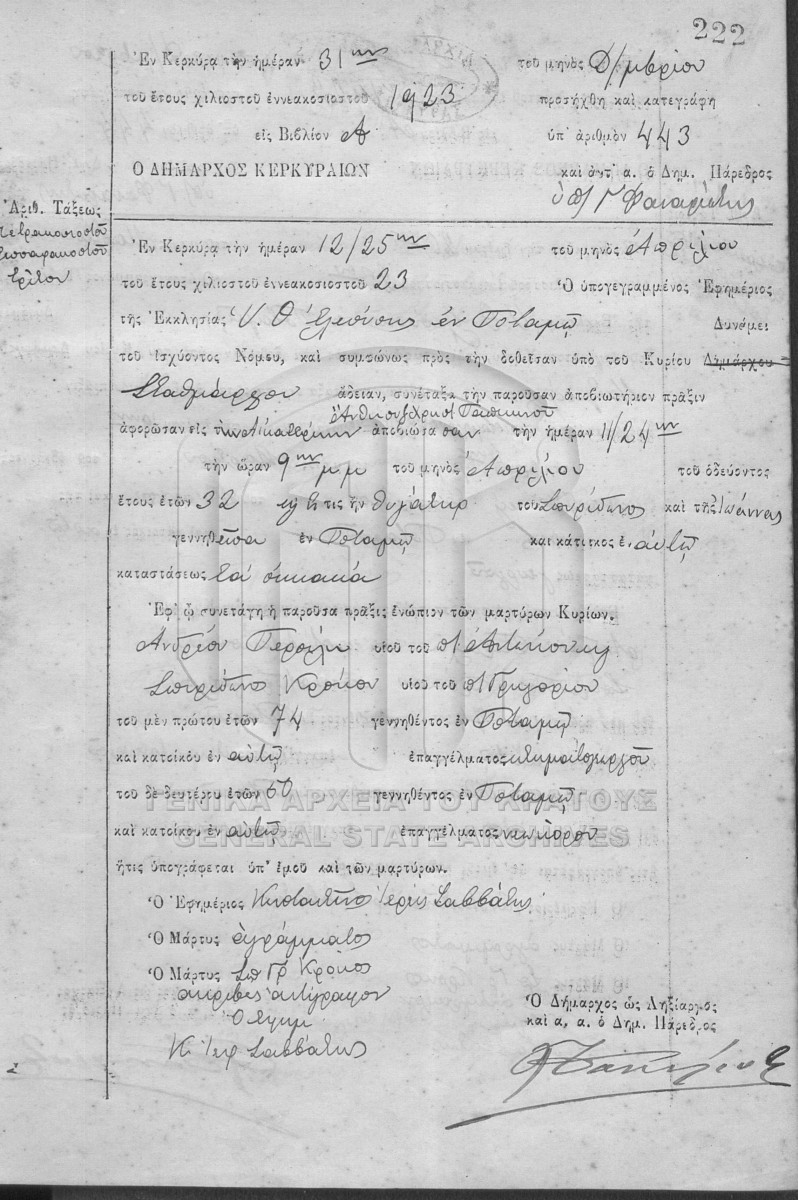 222
Ἐν Κερκύρᾳ τὴν ἡμέραν 31ην τοῦ μηνὸς Δ/μβρίου
τοῦ ἔτους χιλιοστοῦ ἐννεακοσιοστοῦ 1923 προσήχθη καὶ κατεγράφη
εἰς Βιβλίον Α ὑπ' ἀριθμὸν 443
Ο ΔΗΜΑΡΧΟΣ ΚΕΡΚΥΡΑΙΩΝ καὶ ἀντ' α. ὁ Δημ. Πάρεδρος
Ἀριθ. Τάξεως
τετρακοσιοστοῦ
τεσσαρακοστοῦ
τρίτου
Ἐν Κερκύρᾳ τὴν ἡμέραν 12/25ην τοῦ μηνὸς Ἀπριλίου
τοῦ ἔτους χιλιοστοῦ ἐννεακοσιοστοῦ 23 Ὁ ὑπογεγραμμένος Ἐφημέριος
τῆς Ἐκκλησίας Υ. Θ Ἐλεούσης ἐν Ποταμῷ Δυνάμει
τοῦ ἰσχύοντος Νόμου, καὶ συμφώνως πρὸς τὴν δοθεῖσαν ὑπὸ τοῦ Κυρίου Δημάρχου
Σταθμάρχου ἄδειαν, συνέταξα τὴν παροῦσαν ἀποβιωτήριον πρᾶξιν
ἀφορῶσαν εἰς τὴν Αἰκατερίνην ἀποβιώσασαν τὴν ἡμέραν 11/24ην
τὴν ὥραν 9ην μ μ τοῦ μηνὸς Ἀπριλίου τοῦ ὁδεύοντος
ἔτους ἐτῶν 32 ἥτις ἦν θυγάτηρ τοῦ Σπυρίδωνος καὶ τῆς Ἰωάννας
γεννηθεῖσα ἐν Ποταμῷ καὶ κάτοικος ἐν αὐτῷ
καταστάσεως τὰ οἰκιακά
Ἐφ' ᾧ συνετάγη ἡ παροῦσα πρᾶξις ἐνώπιον τῶν μαρτύρων Κυρίων.
Ἀνδρέου υἱοῦ τοῦ πτ Ἀντωνίου
Σπυρίδωνος Κρόκου υἱοῦ τοῦ πτ Γρηγορίου
τοῦ μὲν πρώτου ἐτῶν 74 γεννηθέντος ἐν Ποταμῷ
καὶ κατοίκου ἐν αὐτῷ ἐπαγγέλματος κτηματογεωργοῦ
τοῦ δὲ δευτέρου ἐτῶν 60 γεννηθέντος ἐν Ποταμῷ
ΓΕΝΙΚΑ ΑΡΧΕΙΑ ΤΟΥ ΚΡΑΤΟΥΣ
καὶ κατοίκου ἐν αὐτῷ ἐπαγγέλματος νεωκόρου
GENERAL STATE ARCHIVES
ἥτις ὑπογράφεται ὑπ' ἐμοῦ καὶ τῶν μαρτύρων.
Ὁ Ἐφημέριος Κωσταντῖνος Ἱερεὺς Σαββάτης
Ὁ Μάρτυς ἀγράμματος
Ὁ Μάρτυς Σπ Γρ Κρόκος
ἀκριβὲς ἀντίγραφον
Ὁ Ἐφημ
Κ Ἱερ Σαββάτης
Ὁ Δήμαρχος ὡς Ληξίαρχος
καὶ α, α. ὁ Δημ. Πάρεδρος